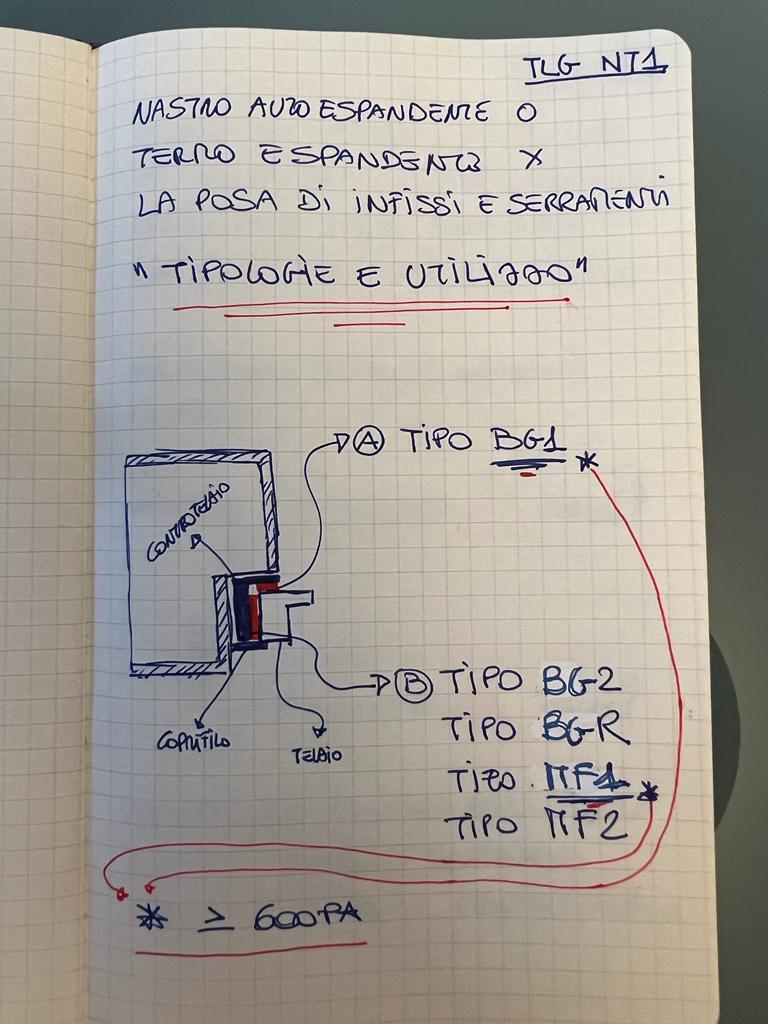 TLG NT1
NASTRO AUTO ESPANDENTE O
TERMO ESPANDENTE X
LA POSA DI INFISSI E SERRAMENTI
"TIPOLOGIE E UTILIZZO"
A TIPO BG1 *
CONTROTELAIO
B TIPO BG2
TIPO BGR
TIPO MF1 *
TIPO MF2
COPRIFILO
TELAIO
* ≥ 600PA